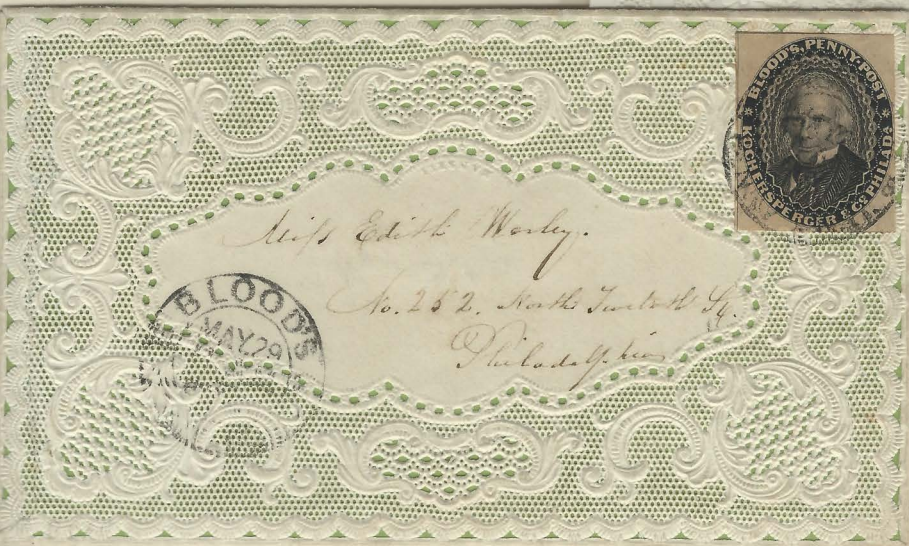 BLOOD'S, PENNY-POST
KOCHERSPERGER & Co. PHILADA.
Miss Edith Worley.
No. 252. North Twelvth St.
Philadelphia
BLOOD'S
MAY 29